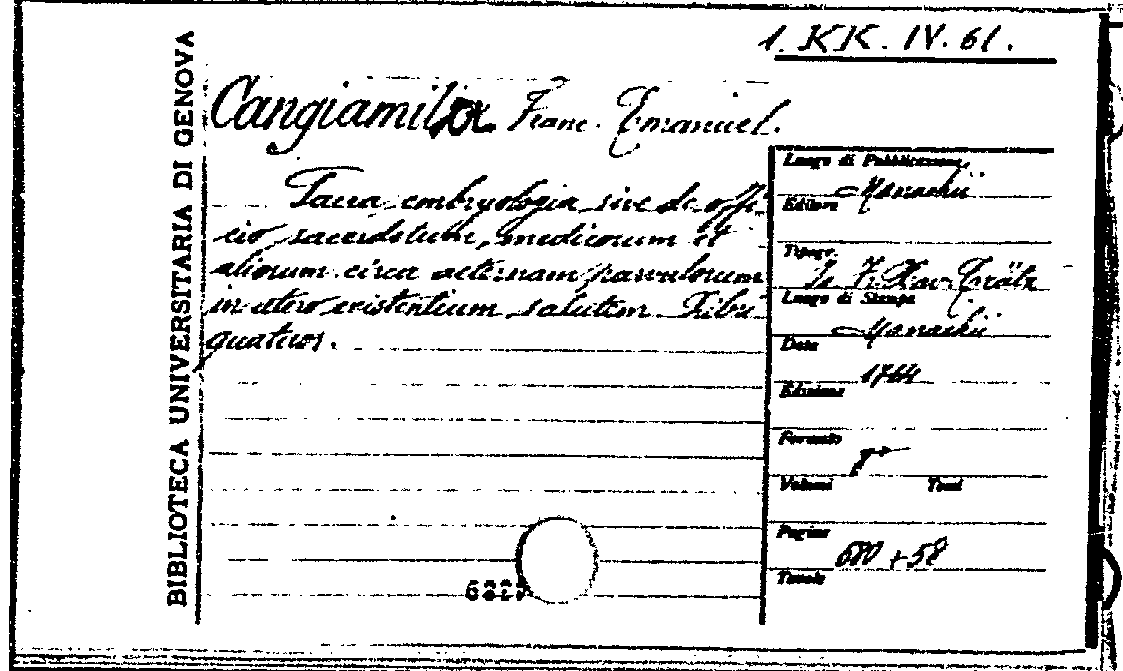 1. KK. IV. 61.
BIBLIOTECA UNIVERSITARIA DI GENOVA
Cangiamila Franc. Emanuel.
Sacra embryologia sive de offi-
cio sacerdotum, medicorum et
aliorum circa aeternam parvulorum
in utero existentium salutem. Libri
quatuor.
Luogo di Pubblicazione
Monachii
Editore
Tipogr.
F. Xav. Crätz
Luogo di Stampa
Monachii
Data
1764
Edizione
Formato
8°
Volumi Tomi
Pagine
680 + 58
Tavole